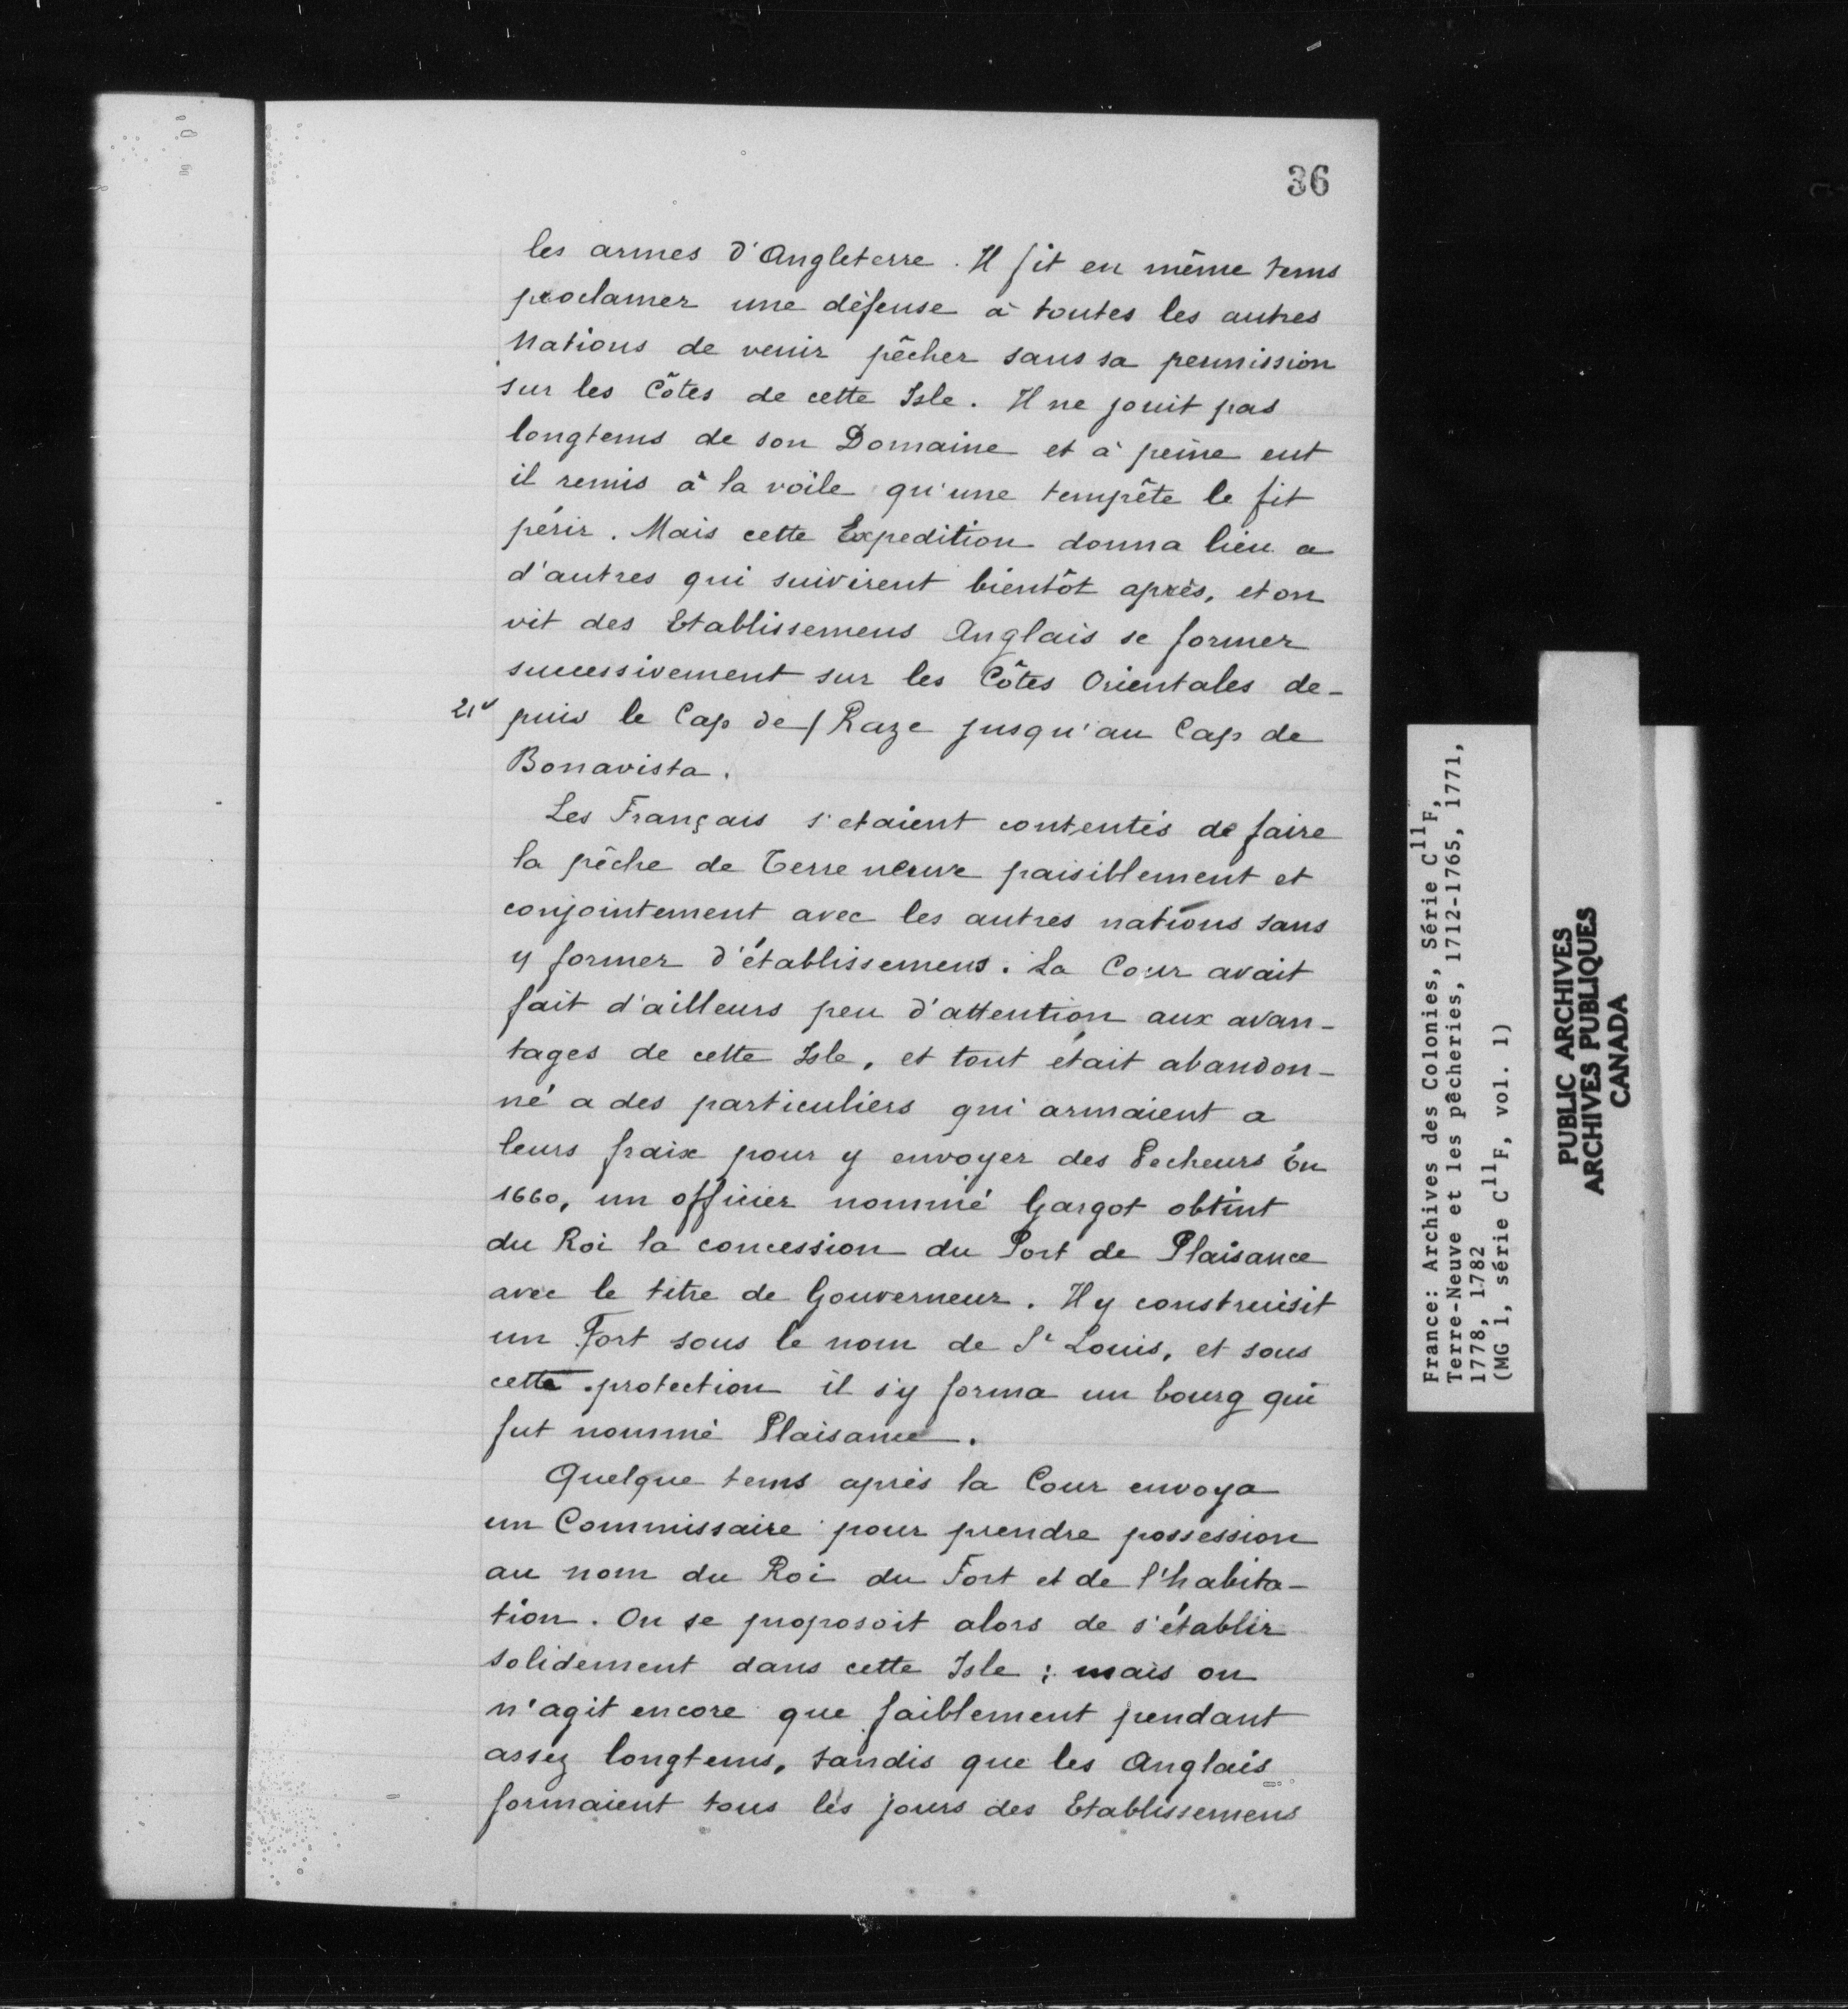 36
les armes d'Angleterre. Il fit en même tems
proclamer une défense à toutes les autres
Nations de venir pêcher sans sa permission
sur les Côtes de cette Isle. Il ne jouit pas
longtems de son Domaine et à peine eut
il remis à la voile qu'une tempête le fit
périr. Mais cette Expedition donna lieu a
d'autres qui suivirent bientôt après, et on
vit des Etablissemens Anglais se former
successivement sur les Côtes Orientales de-
21v puis le Cap de / Raze jusqu'au Cap de
Bonavista.
Les Français s'etaient contentés de faire
la pêche de Terre neuve paisiblement et
conjointement avec les autres nations sans
y former d'établissemens. La Cour avait
fait d'ailleurs peu d'attention aux avan-
tages de cette Isle, et tout était abandon-
né a des particuliers qui armaient a
leurs fraix pour y envoyer des Pecheurs En
1660, un officier nommé Gargot obtint
du Roi la concession du Port de Plaisance
avec le titre de Gouverneur. Il y construisit
un Fort sous le nom de St Louis, et sous
cette protection il s'y forma un bourg qui
fut nommé Plaisance.
Quelque tems après la Cour envoya
un Commissaire pour prendre possession
au nom du Roi du Fort et de l'habita-
tion. On se proposoit alors de s'établir
solidement dans cette Isle ; mais on
n'agit encore que faiblement pendant
assez longtems, tandis que les Anglais
formaient tous les jours des Etablissemens
France: Archives des Colonies, Série C11F,
Terre-Neuve et les pêcheries, 1712-1765, 1771,
1778, 1782
(MG 1, série C11F, vol. 1)
PUBLIC ARCHIVES
ARCHIVES PUBLIQUES
CANADA